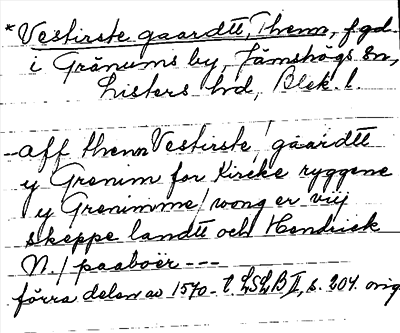 * Vestirste gaardtt, Them, f. gd.
i Gränums by, Jämshögs sn,
Listers hd, Blek. l.
- aff them Vestirste / gaardtt
y Grenum for Kireke ryggene
y Grenimme / wong er viij
skeppe landtt och Hendrick
N. / paaboër - - -
förra delen av 1570-t. LSLB II, s. 204. orig